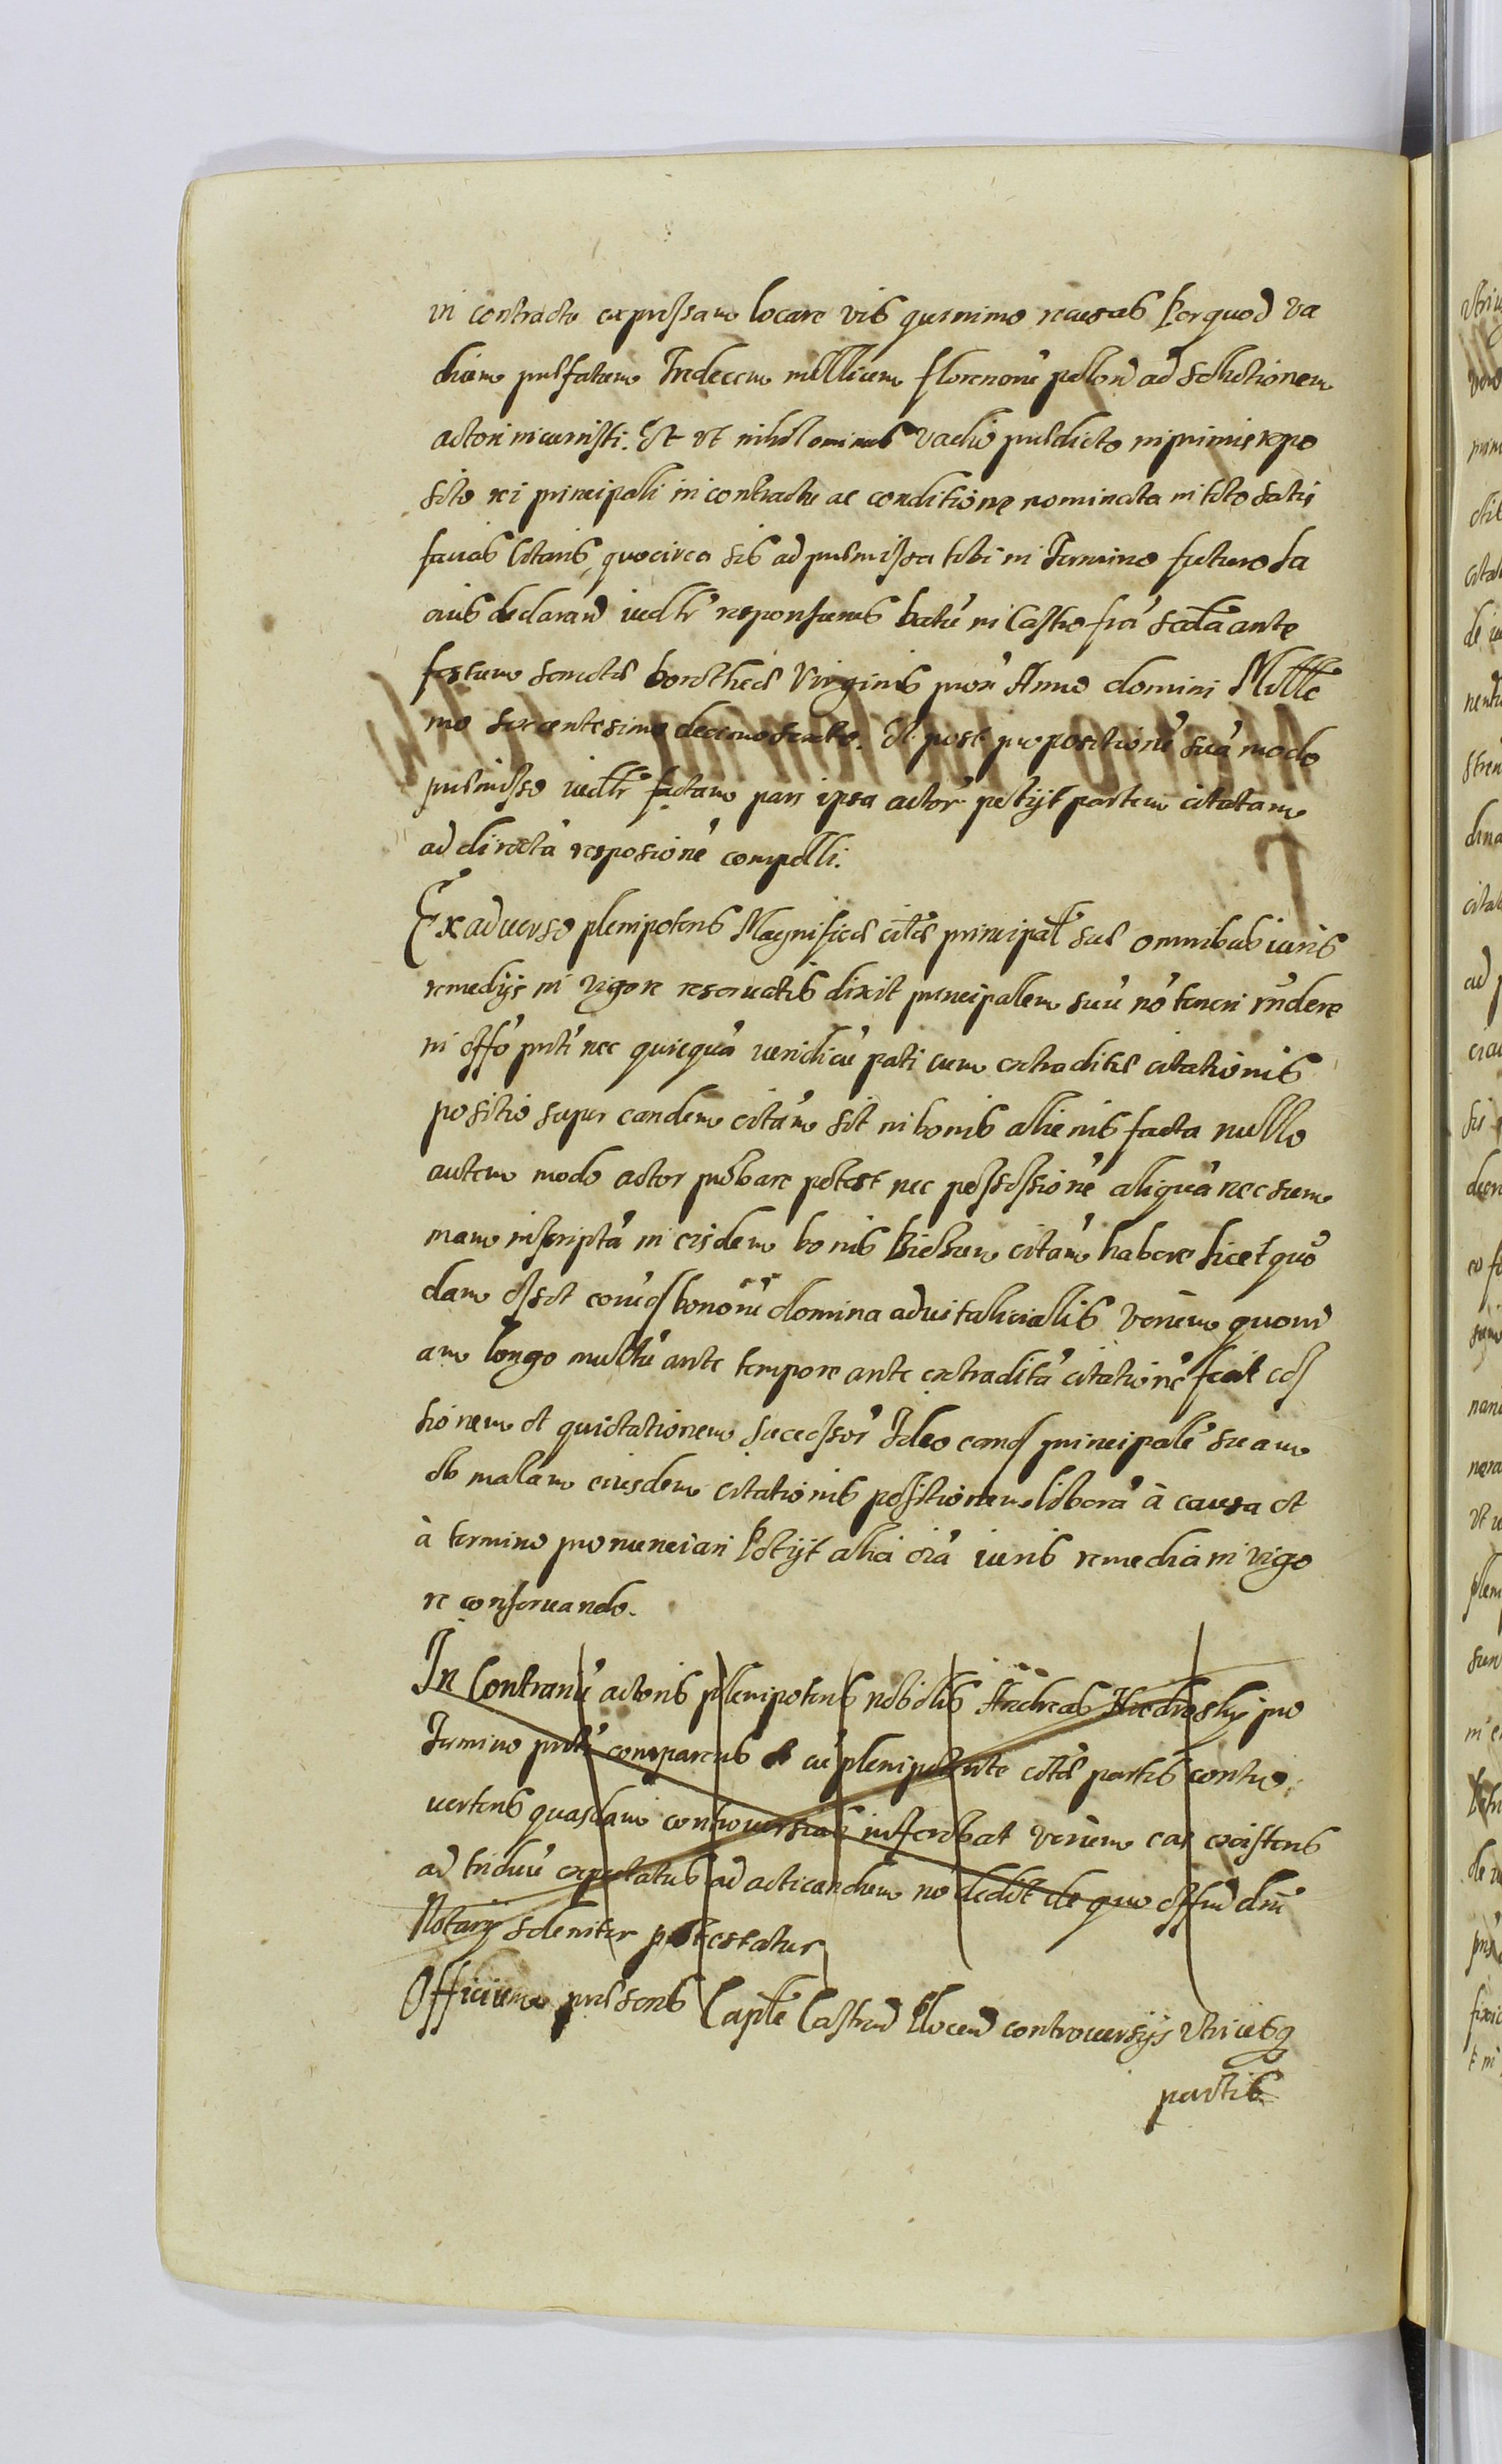 in contractu expressam locare vis quinimo recusas Per quod va
dium præfatum Tredecem millium florenorũ polloń ad solutionem
actori incurristi. Et ut nihilominus vadio prædicto inprimis repo
sito rei principali in contractu ac conditione nominata in toto satis
facias Citaris, quocirca sis ad præmissa tibi in Termino futuro la
cius declarań iudłr responsurus Datũ in Castro fria Sabła ante
festum sanctæ Dorotheæ Virginis prox Anno domini Mille
mo sexcentesimo decimo sexto. Et post propositionẽ suã modo
præmisso iudłr factam pars ipsa actor petijt partem citatam
ad directã resposionẽ compelli.
Ex adverso plenipotens Magnificæ citæ principał suæ omnibus iuris
remedijs in vigore reservatis dixit principalem suũ nõ teneri rñdere
in offõ pnti nec quicquã iuridicũ pati cum extraditæ citationis
positio super eandem citãm sit in bonis alienis facta nullo
autem modo actor probare potest nec possessionẽ aliquã nec sum
mam inscriptã in eisdem bonis citãm habere licet quõ
dam esset bonorũ domina advitalicialis verum quoni
am longo multũ ante tempore ante extraditã citationẽ fecit ces
sionem et quietationem successor Ideo eand principalẽ suam
ob malam eiusdem citationis positionem liberã à causa et
à termino pronunciari Petijt alia oĩa iuris remedia in vigo
re conservando.
In Contrariũ actoris plenipotens nobilis Andreas pro
Termino pnti comparens cũ plenipotente citæ partis contro
vertens quasdam controversias inferebat verum eas existens
ad triduũ expectatus ad acticandum nõ dedit de quo offiũ dni
Notarij soleniter protestatur
Officium præsens Capłe Castreń Plocen controversijs utriusq
partis